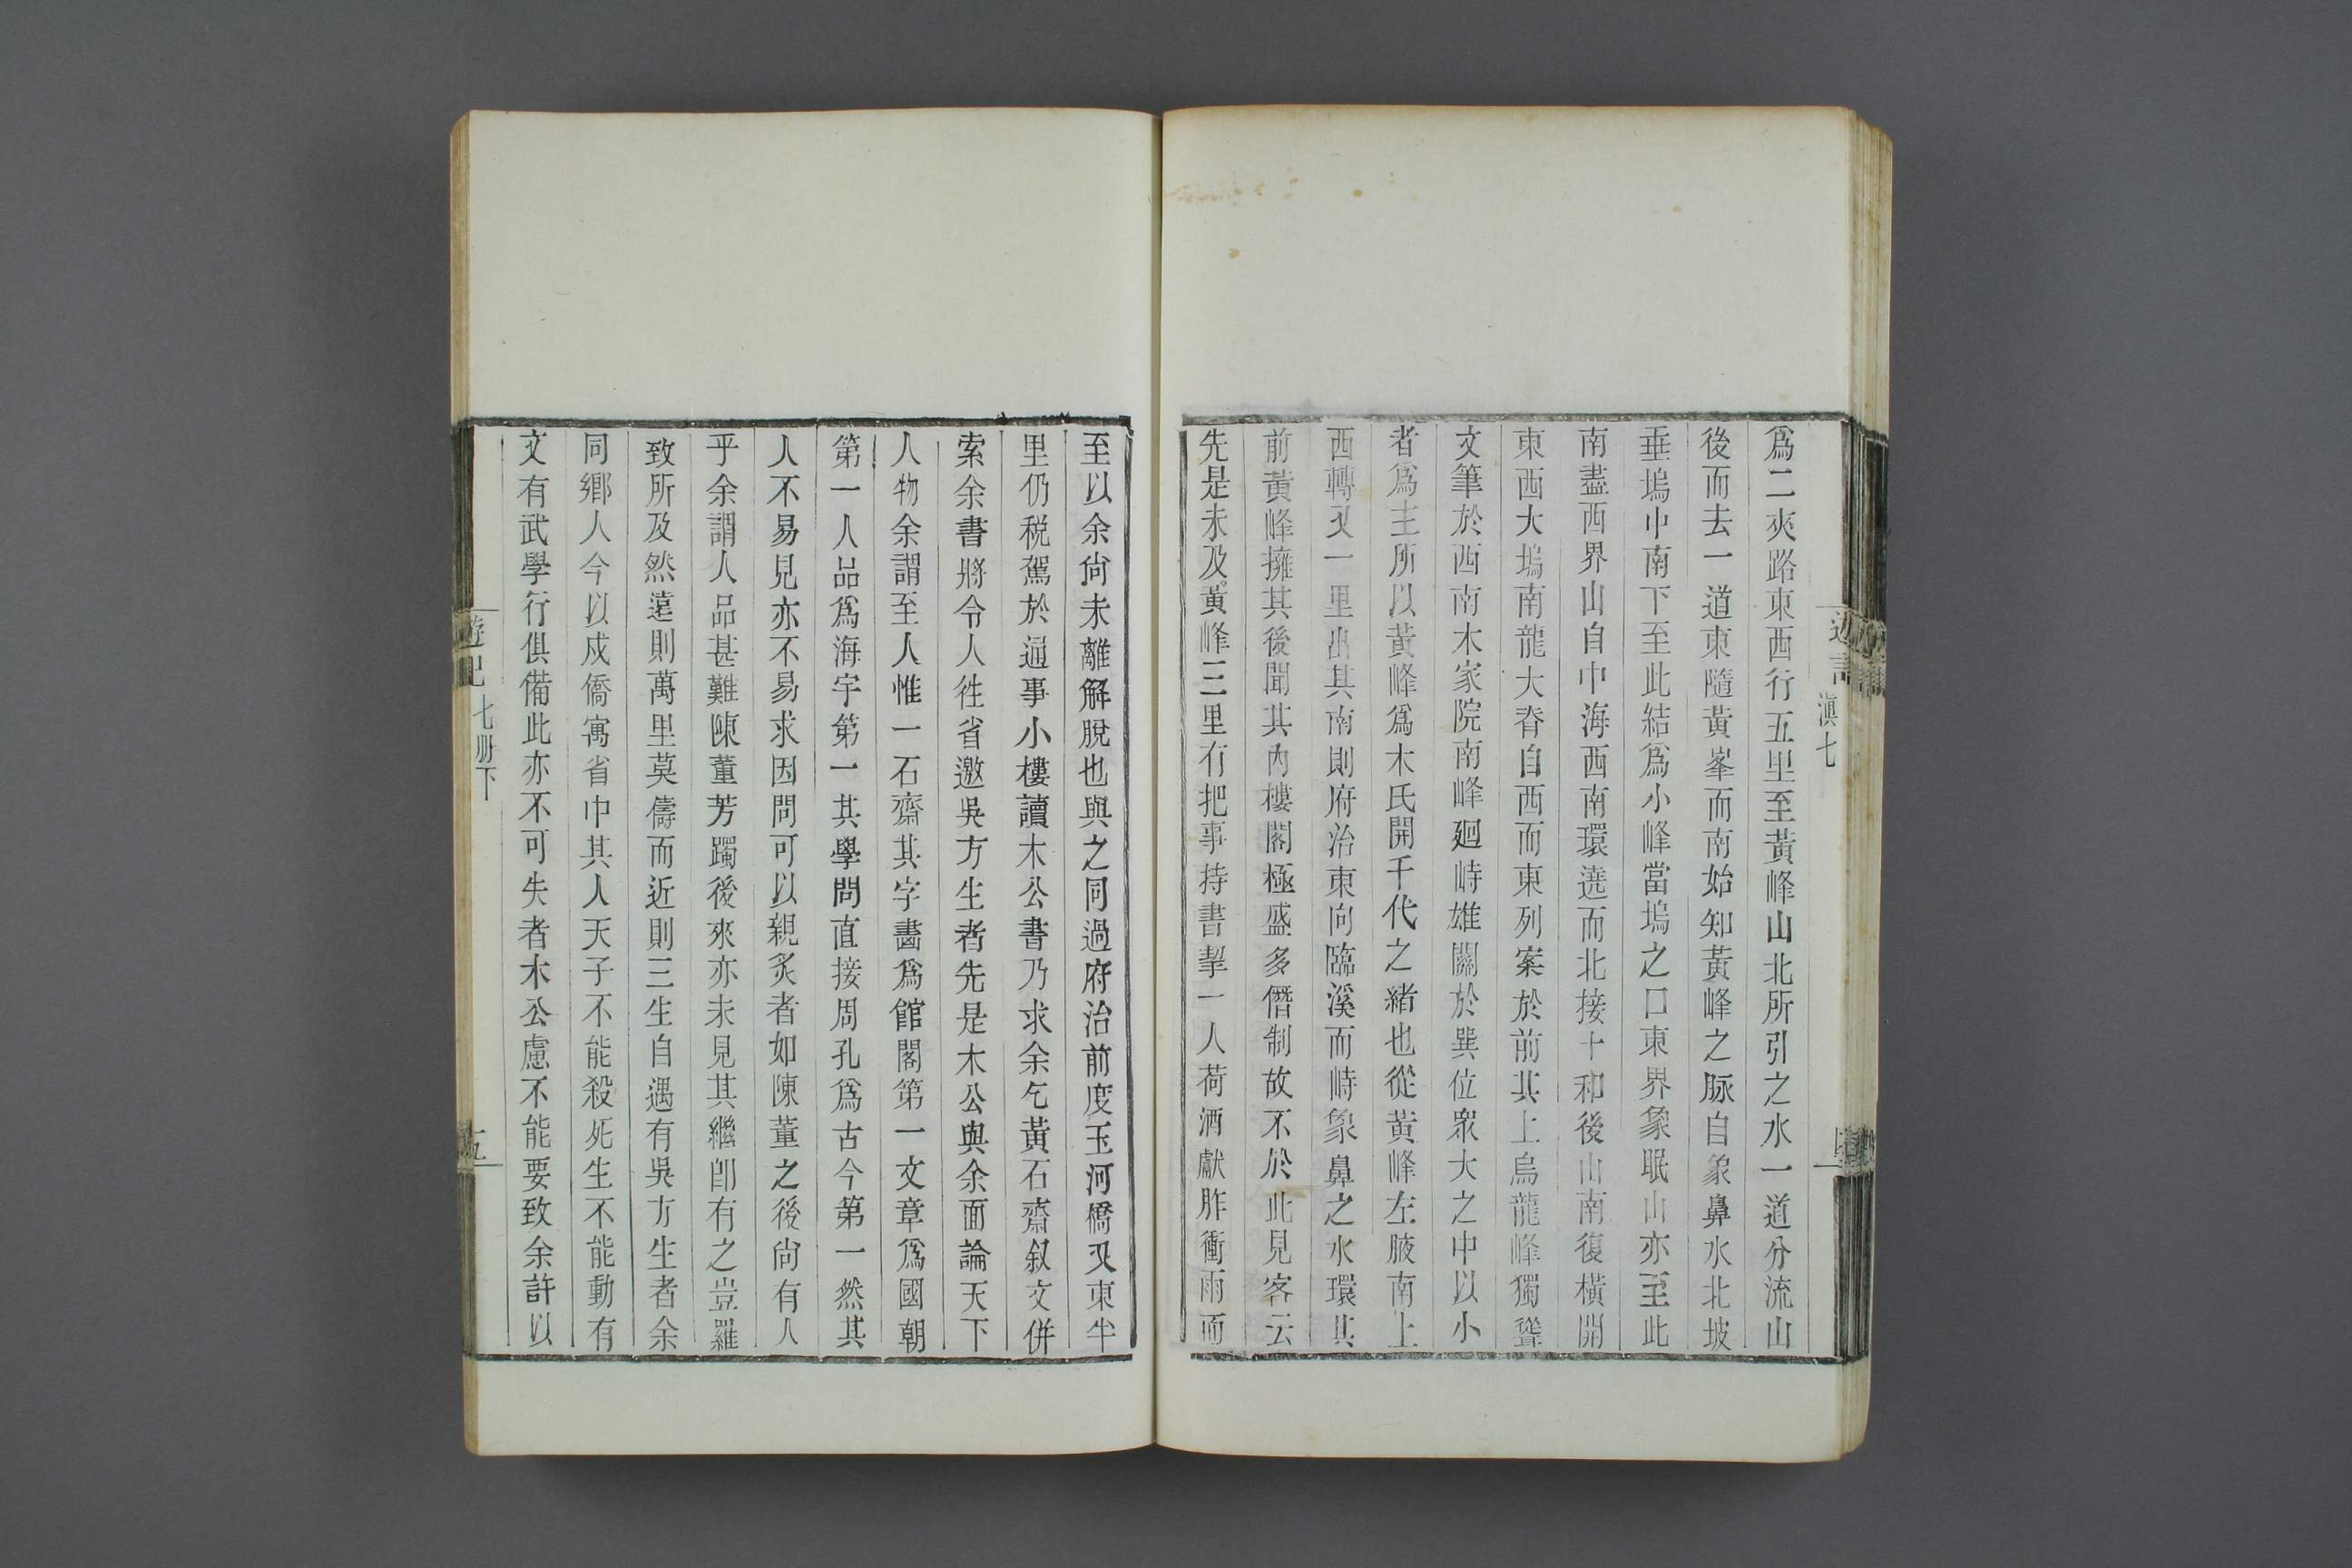 爲二夾路東西行五里至黃峰山北所引之水一道分流山
後而去一道東隨黃峯而南始知黃峰之脉自象鼻水北坡
垂塢中南下至此結爲小峰當塢之口東界象眠山亦至此
南盡西界山自中海西南環遶而北接十和後山南復橫開
東西大塢南龍大脊自西而東列案於前其上烏龍峰獨聳
文筆於西南木家院南峰廻峙雄關於巽位衆大之中以小
者爲主所以黃峰爲木氏開千代之緒也從黃峰左腋南上
西轉又一里出其南則府治東向臨溪而峙象鼻之水環其
前黃峰擁其後聞其內樓閣極盛多僭制故不於此見客云
先是未及黃峰三里有把事持書挈一人荷酒獻胙衝雨而
遊記 滇七
至以余尙未離解脫也與之同過府治前度玉河橋又東半
里仍税駕於通事小樓讀木公書乃求余乞黃石齋叙文併
索余書將令人徃省邀吳方生者先是木公與余面論天下
人物余謂至人惟一石齋其字畵爲館閣第一文章爲國朝
第一人品爲海宇第一其學問直接周孔爲古今第一然其
人不易見亦不易求因問可以親炙者如陳董之後尙有人
乎余謂人品甚難陳董芳躅後來亦未見其繼卽有之豈羅
致所及然遠則萬里莫儔而近則三生自遇有吳方生者余
同鄉人今以戍僑寓省中其人天子不能殺死生不能動有
文有武學行俱備此亦不可失者木公慮不能要致余許以
遊記 七册下
五